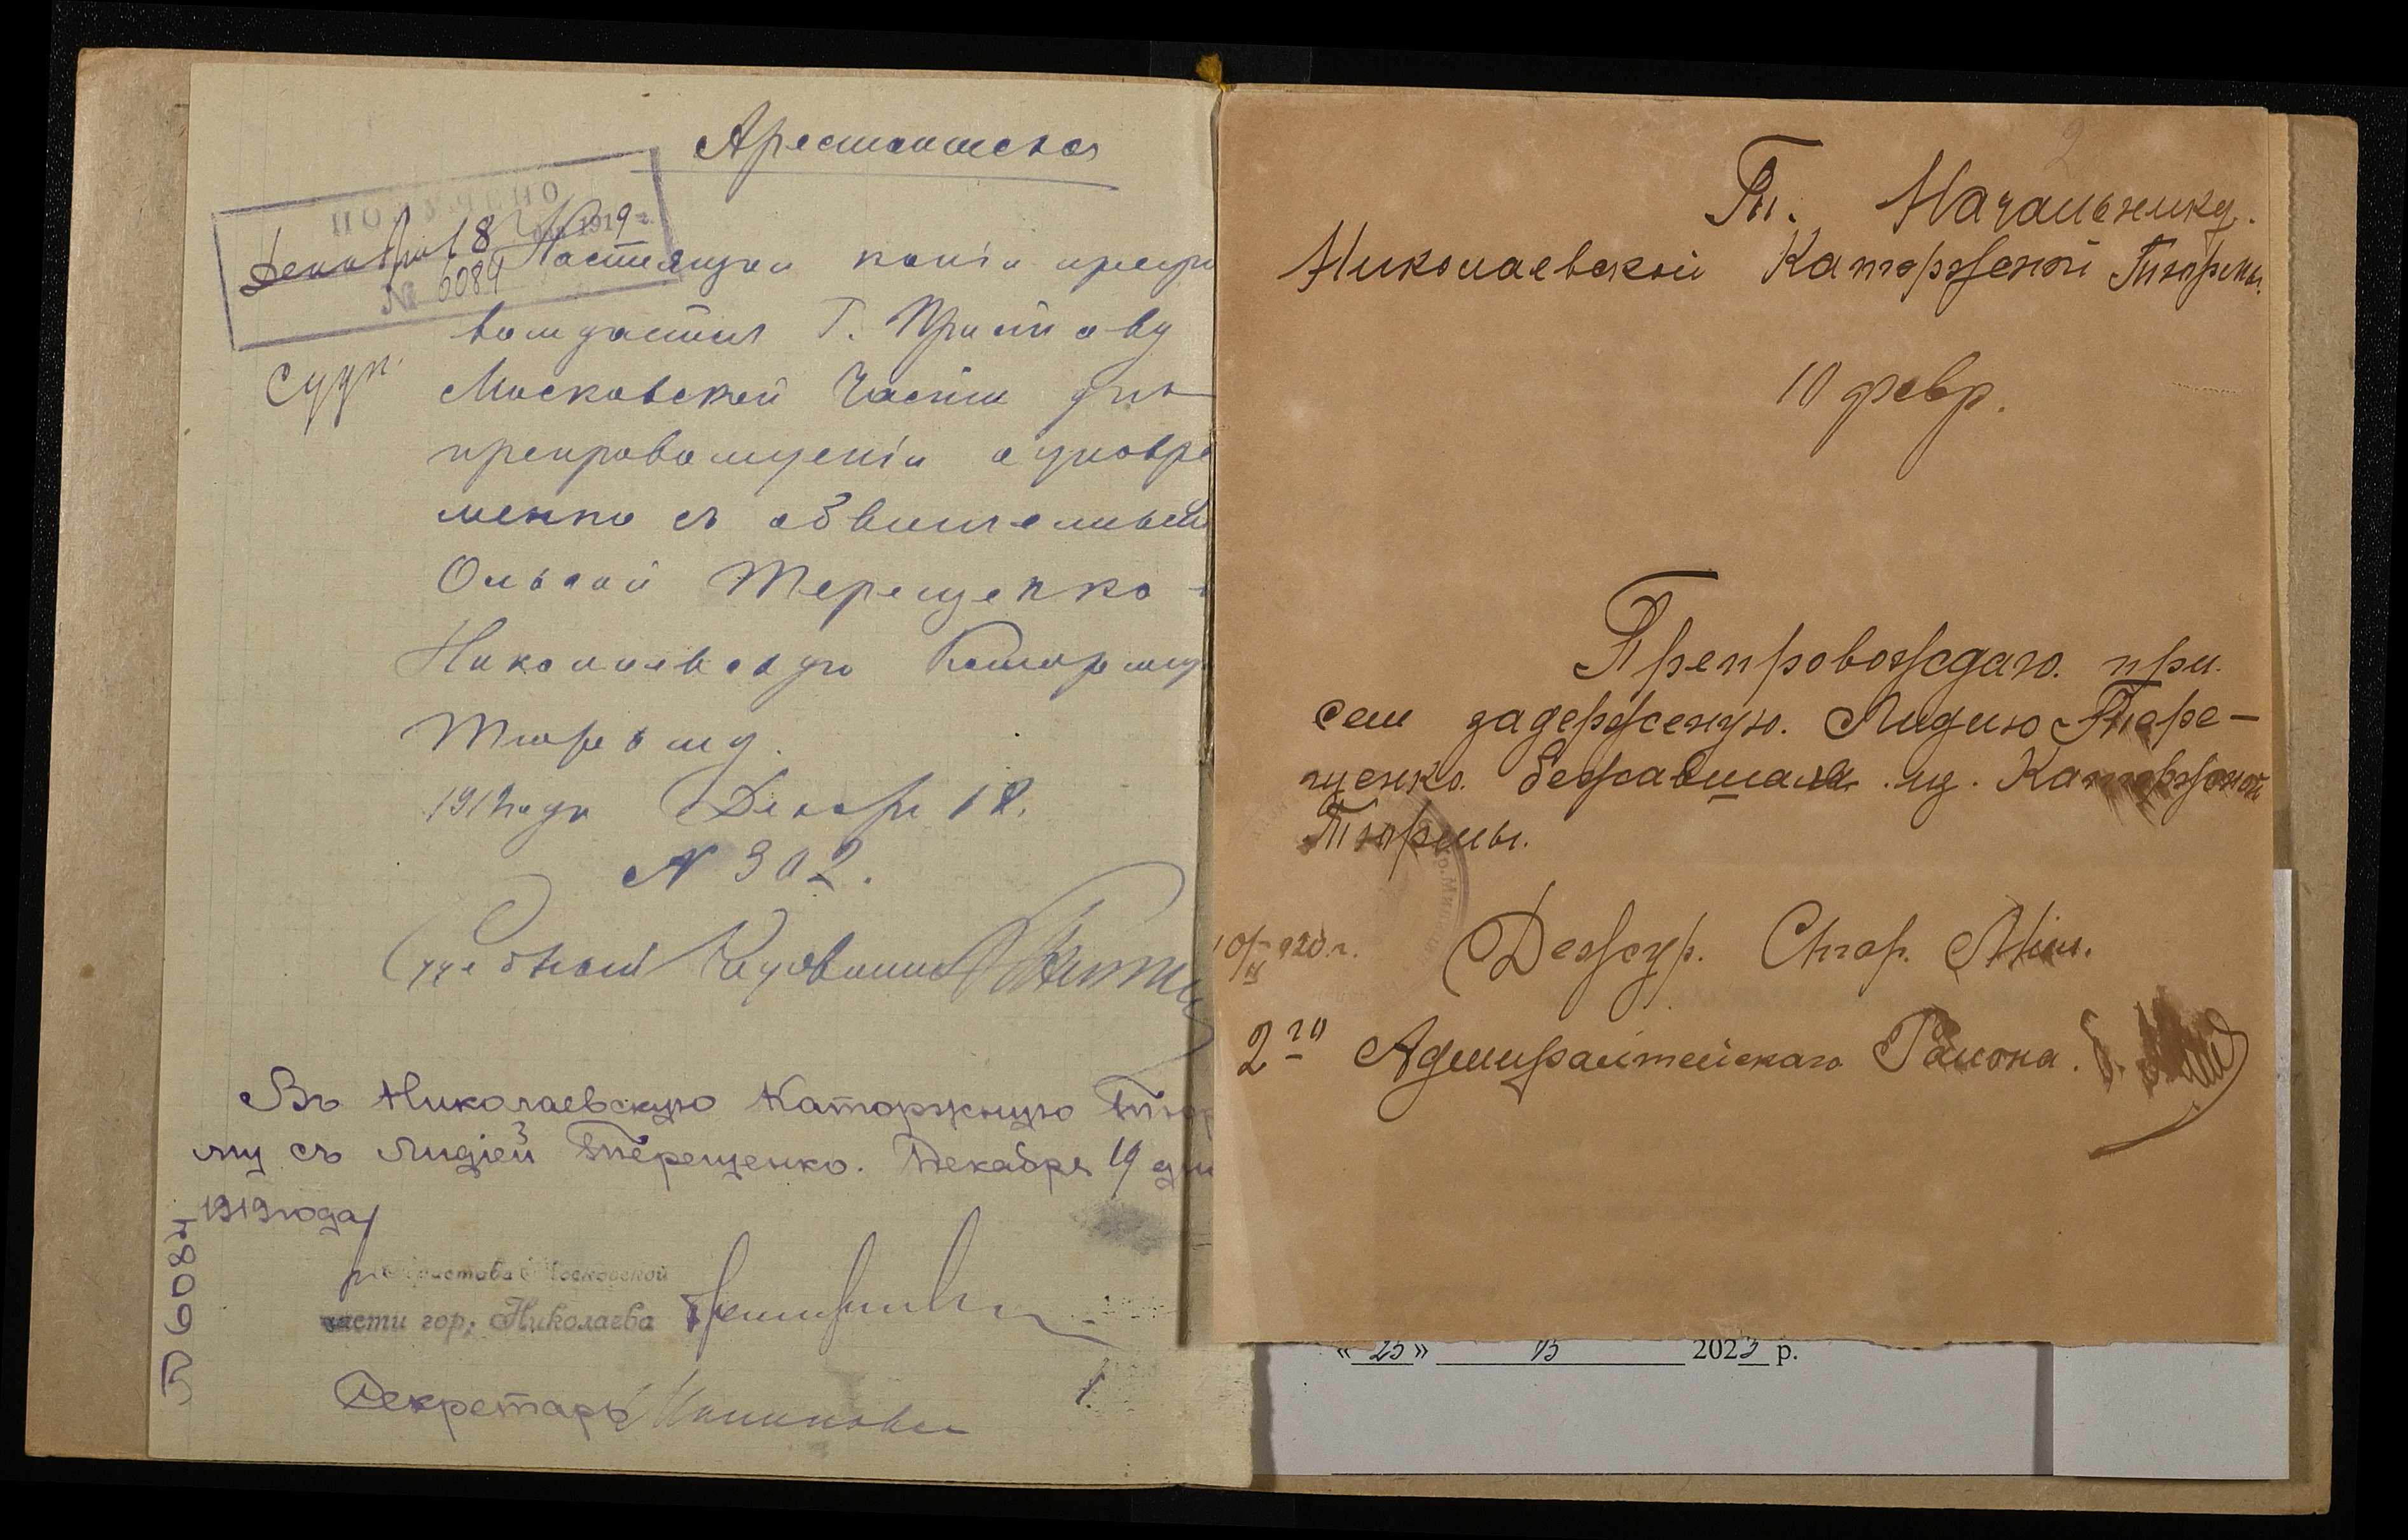 Арестантская
ПОЛУЧЕНО
Декабря 18 1919
№ 6084
Настоящая копія препро
вождается Г. Приставу
Московской Части для
препровожденія одновре
менно съ обвиняемый
Ольгой Терещенко в
Николаевскую Каторжну
Тюрьму.
1919 года Декабр 18.
N 302.
Судебный
Въ Николаевскую Каторжную Тюр
му съ Лидіей Терещенко. Декабря 19 дня
1919 года
Пристава Московской
части гор. Николаева
Секретарь
1.
№ 6084
2
Гн. Начальнику.
Николаевской Каторжной Тюрьмы.
10 февр.
Препровождаю. при.
сем задерженую. Лидию Тере-
щенко. бежавшая из. Каторжной
Тюрьмы.
10/II 920 г. Дежур. Стар. Мил.
2го Адмиралтейскаго Района.
« 25 » 2023 р.